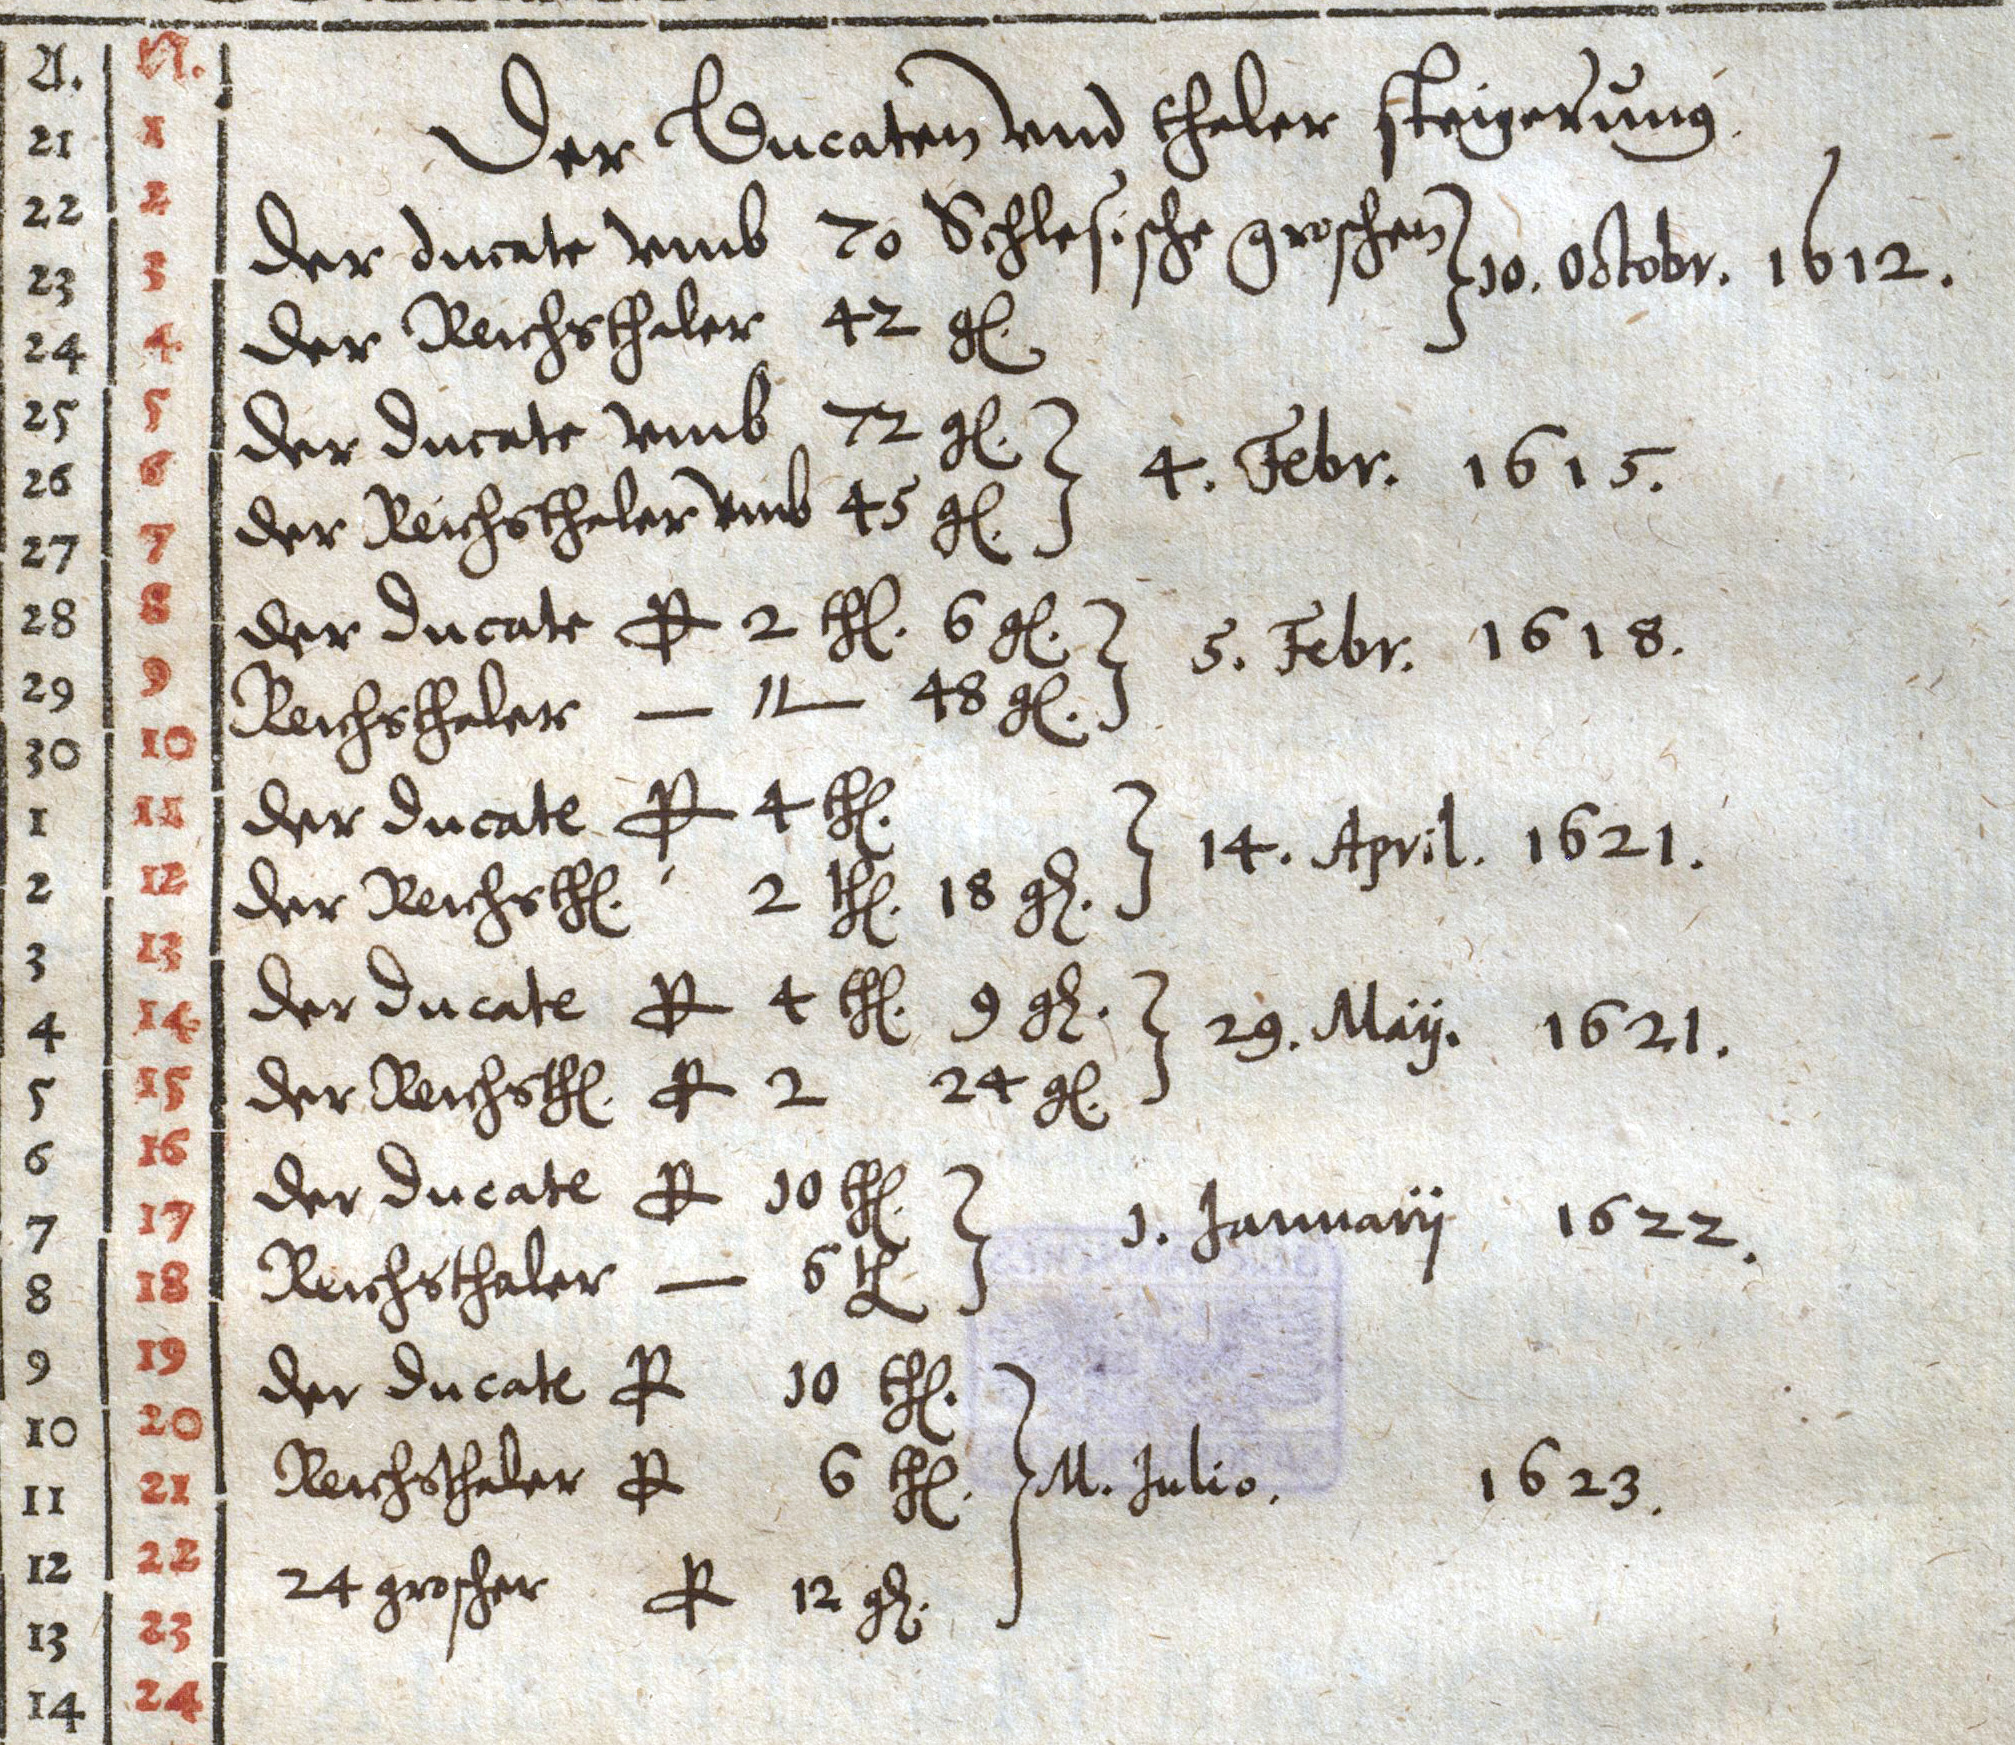 A. N.
21 1 Der Ducaten vnd thaler steigerung.
22 2 der ducate vmb 70 Schlesische groschen
23 3 10. Octobr. 1612.
24 4 der Reichsthaler 42 gl.
25 5 der ducate vmb 72 gl.
26 6 4. Febr. 1615.
27 7 der Reichsthaler vmb 45 gl.
28 8 der ducate 2 thl. 6 gl.
5. Febr. 1618.
29 9 Reichsthaler — 48 gl.
30 10
1 11 der ducate 4 thl.
14. April. 1621.
2 12 der Reichsthl. 2 thl. 18 gl.
3 13
4 14 der ducate 4 thl. 9 gl.
29. Maij. 1621.
5 15 der Reichsthl. 2 24 gl.
6 16
7 17 der ducate 10 thl.
1. Januarij 1622.
8 18 Reichsthaler — 6 thl
9 19 der ducate 10 thl.
10 20
11 21 Reichsthaler 6 thl.
M. Julio. 1623.
12 22 24 groscher 12 gl.
13 23
14 24